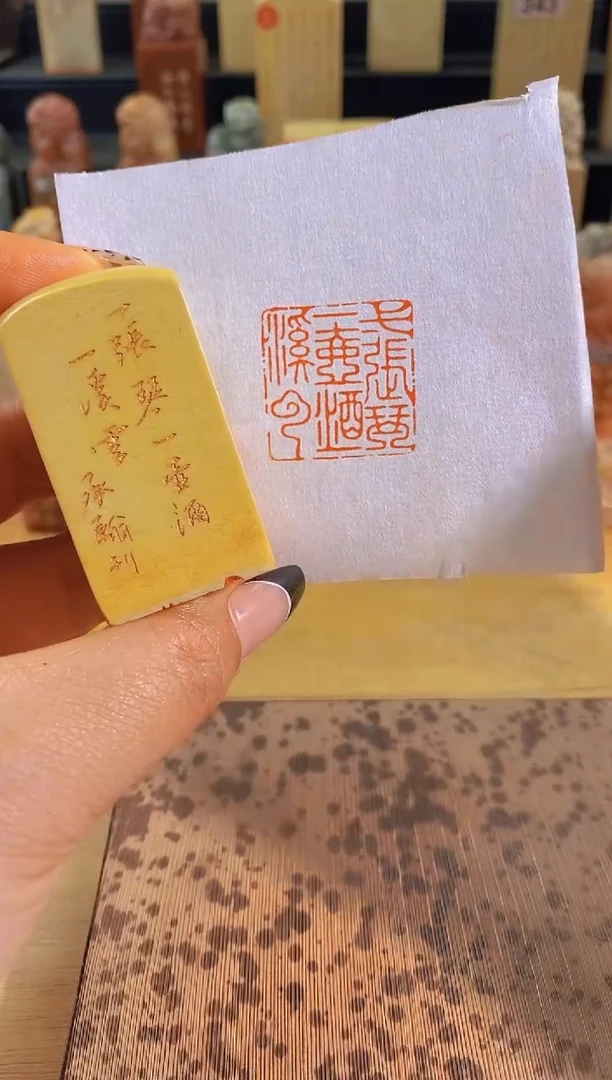 一張琴一壺酒
一溪雲
承翰刻
一張琴
一壺酒
溪云
343